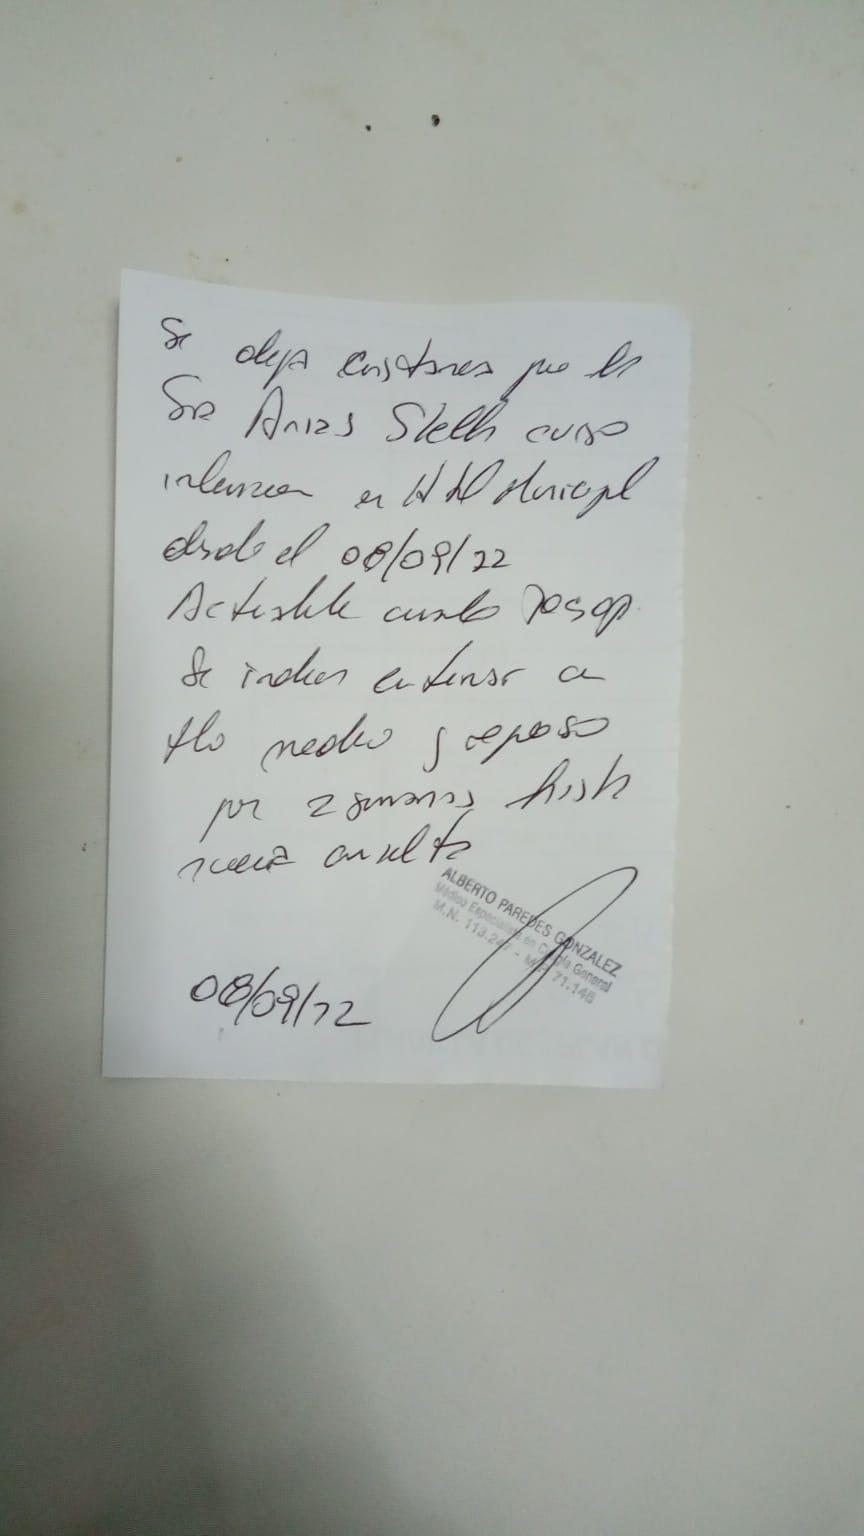 Se deja constancia que la
Sra Arias Stella curso
internacion en Municipal
desde el 08/09/22
Actualmente cursando
Se indica continuar con
tto medico y reposo
por 2 semanas hasta
nueva consulta
ALBERTO PAREDES GONZALEZ
Médico Especialista en Cirugía General
M.N. 71.146
08/09/22